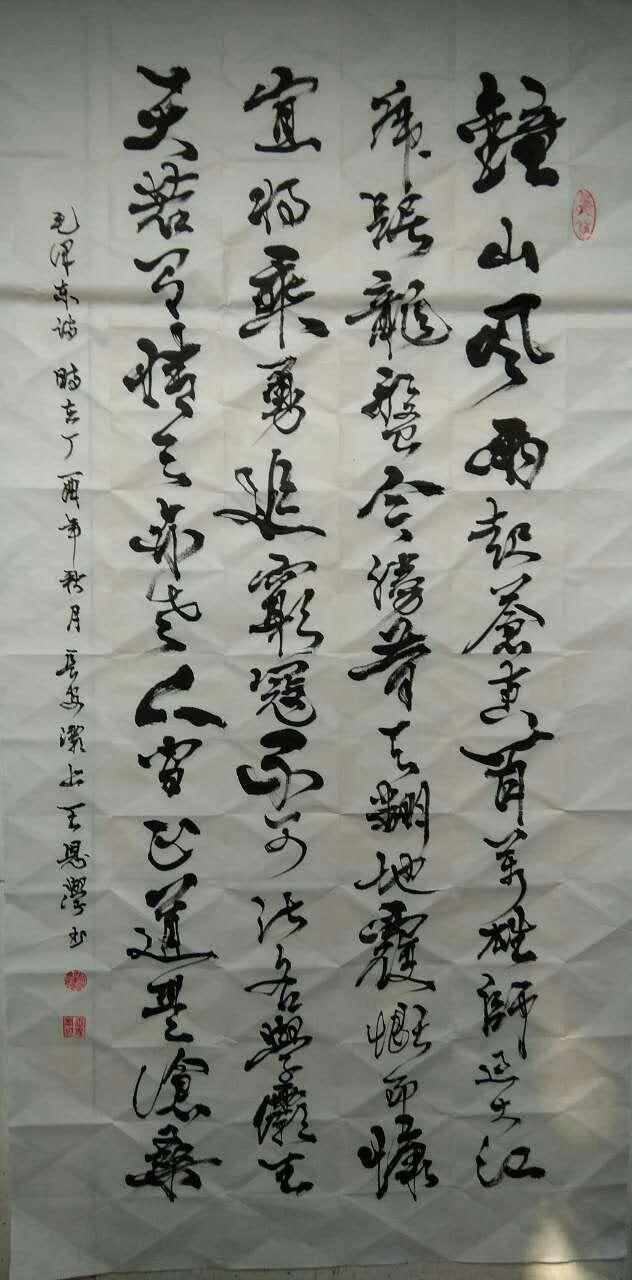 鐘山风雨起蒼黄百萬雄師过大江
虎踞龍盤今勝昔天翻地覆慨而慷
宜将剩勇追窮寇不可沽名學霸王
天若有情天亦老人间正道是滄桑
毛泽东詩 時在丁酉年秋月長安灞上王恩书